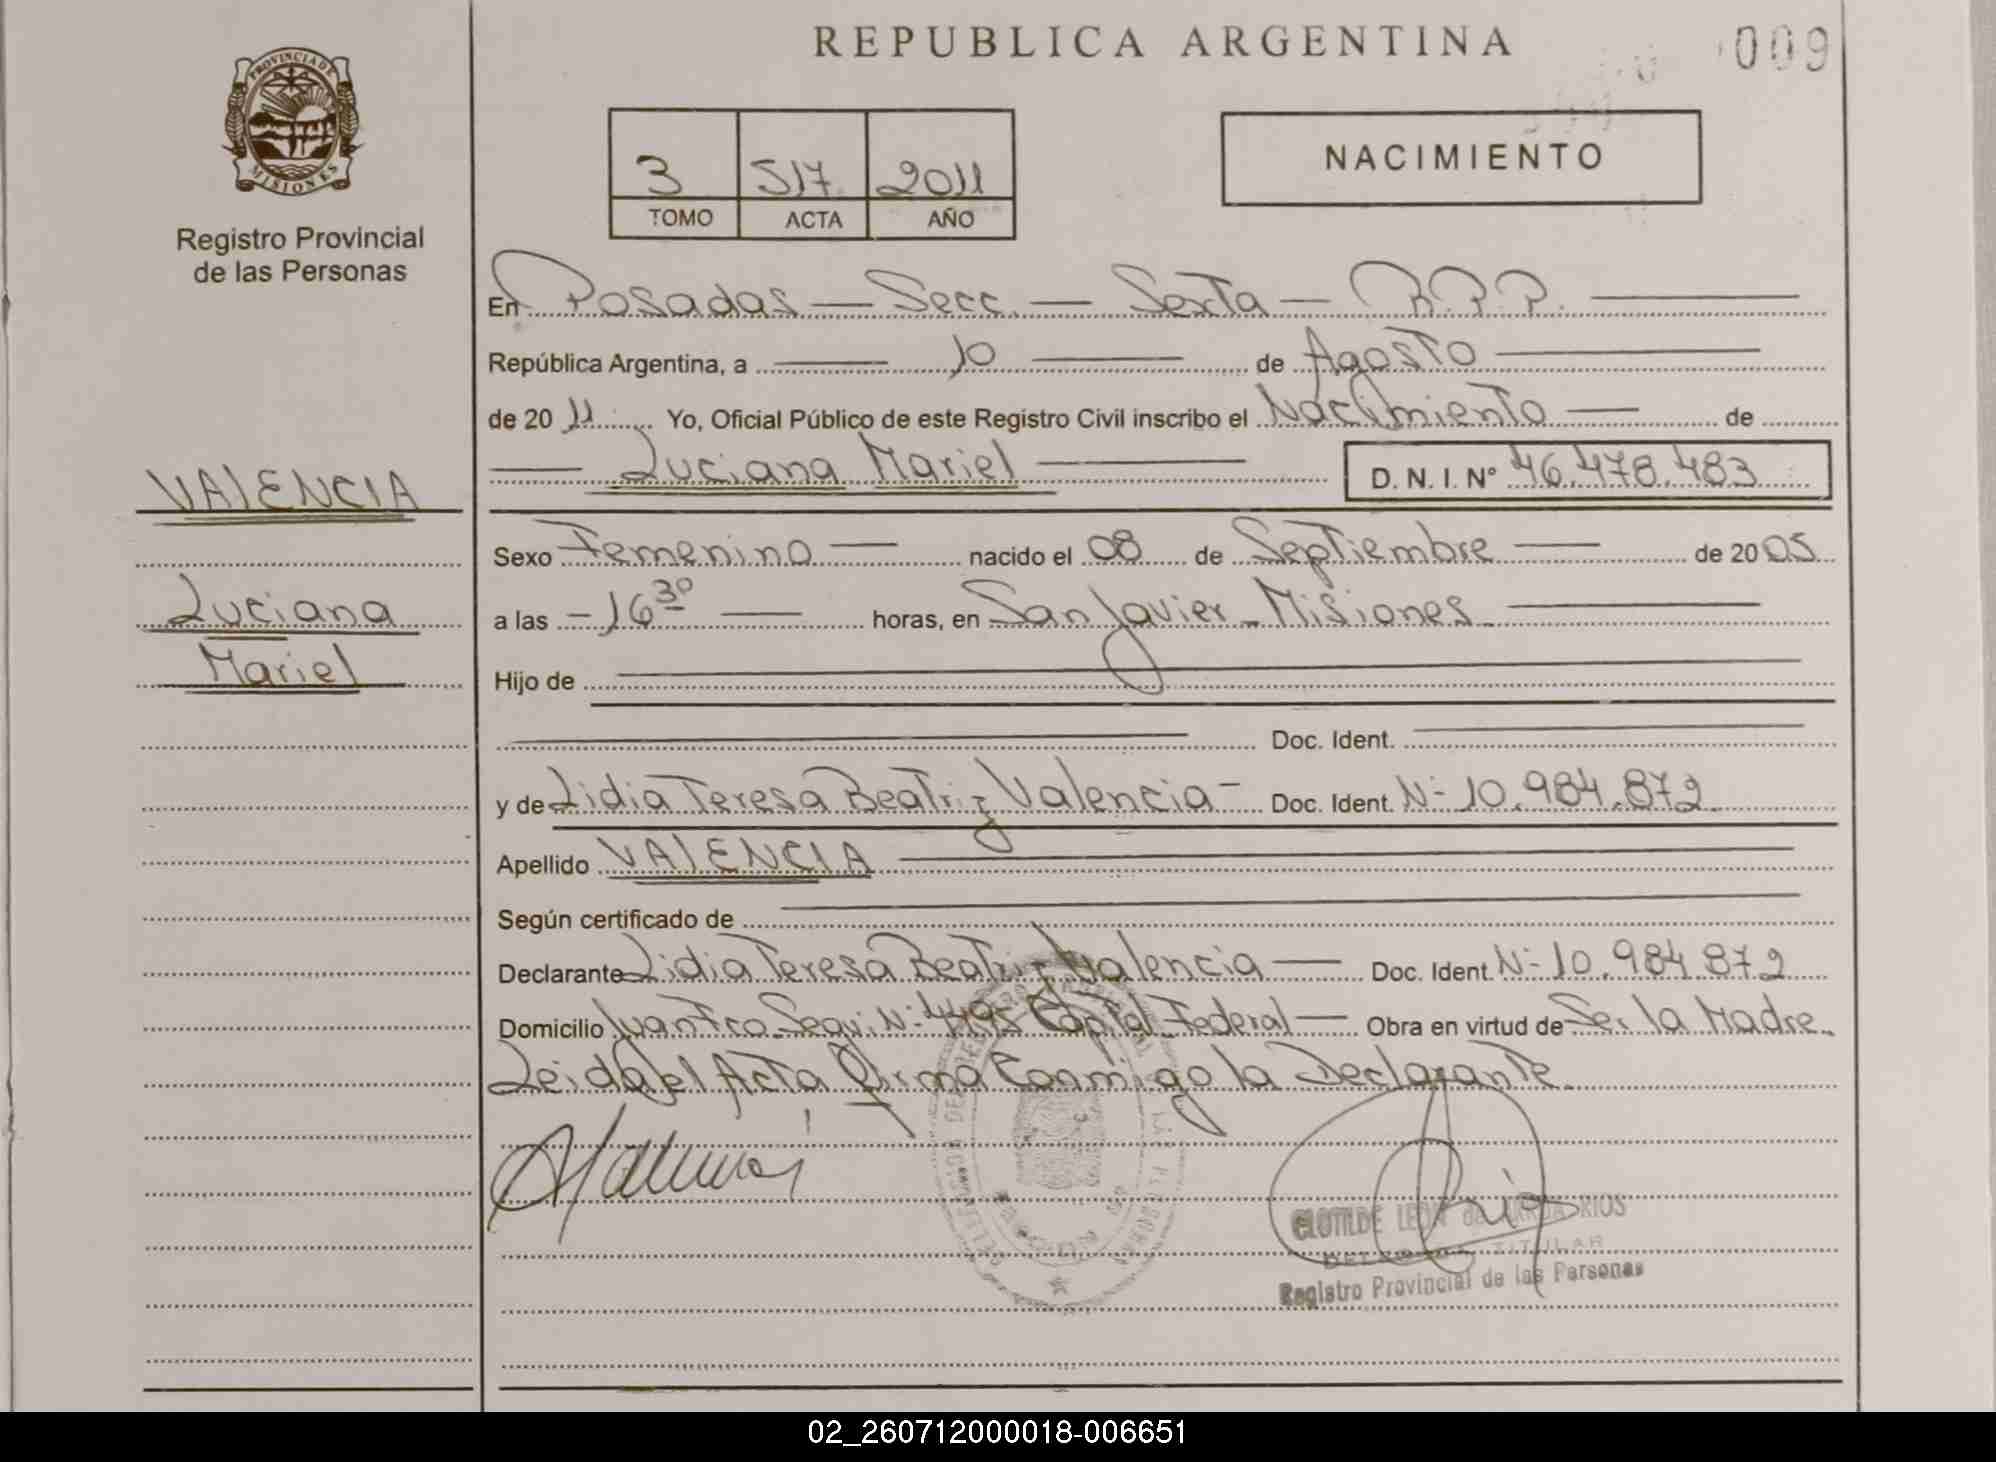 REPUBLICA ARGENTINA
009
PROVINCIA DE
MISIONES
Registro Provincial
de las Personas
3 517 2011
TOMO ACTA AÑO
NACIMIENTO
En Posadas — Secc. — Sexta — R.P.P. —
República Argentina, a — 10 — de Agosto —
de 20 11 Yo, Oficial Público de este Registro Civil inscribo el Nacimiento — de
— Luciana Mariel — D. N. I. Nº 46.478.483
VALENCIA
Luciana
Mariel
Sexo Femenino — nacido el 08 de Septiembre — de 20 05
a las - 16 30 — horas, en San Javier - Misiones —
Hijo de —
— Doc. Ident. —
y de Lidia Teresa Beatriz Valencia - Doc. Ident. Nº 10.984.872
Apellido VALENCIA —
Según certificado de —
Declarante Lidia Teresa Beatriz Valencia — Doc. Ident. Nº 10.984.872
Domicilio Juan Fco. Segui. Nº 4495 Capital Federal — Obra en virtud de Ser la Madre.
Leida el Acta firma Conmigo la Declarante.
CLOTILDE LEON de RIOS
TITULAR
Registro Provincial de las Personas
02_260712000018-006651